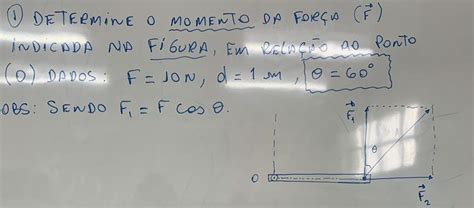 ① DETERMINE O MOMENTO DA FORÇA (F⃗)
INDICADA NA FIGURA, EM RELAÇÃO AO PONTO
(O) DADOS: F = 10N, d = 1 m, θ = 60°
OBS: SENDO F₁ = F COS θ.
F⃗₁
θ
O
F⃗₂